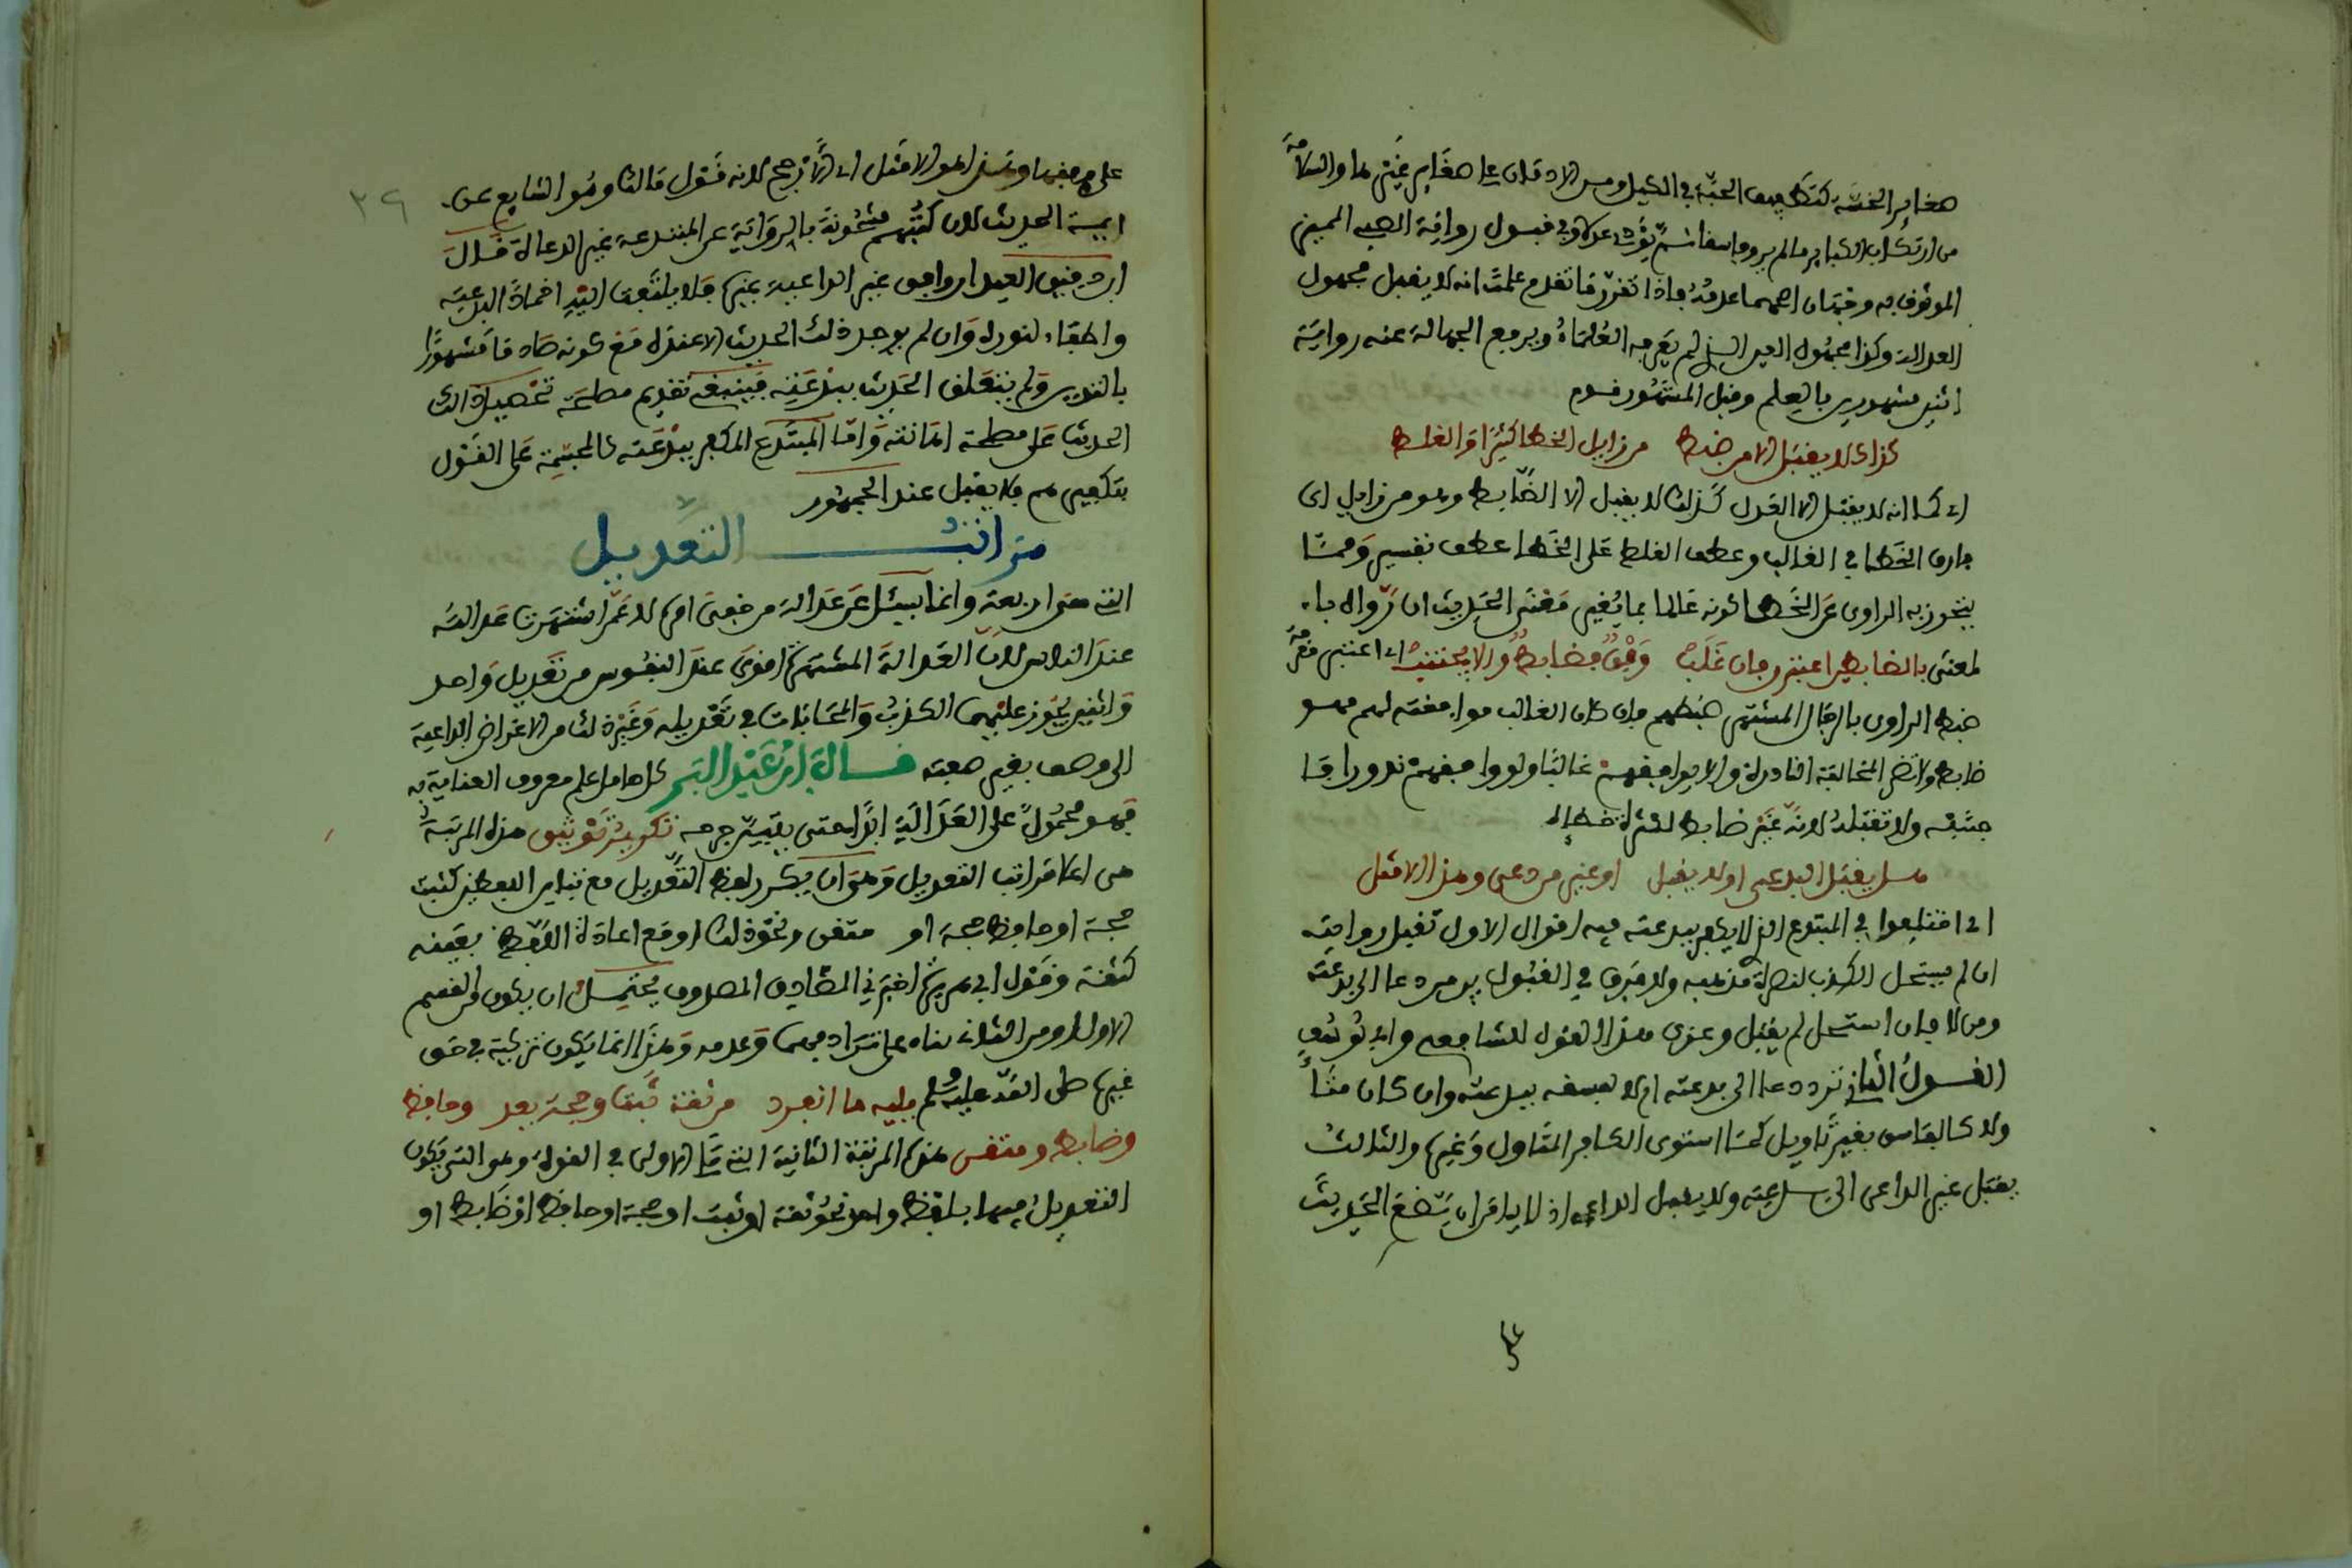 صغاير الخسة كتطفيف الحبة في الكيل ومن الادمان على صغاير غيرها والسلامة
من ارتكاب الكباير مالم يرو فاسقا ثم يؤد عدلا وفي قبول رواية الصبي المميز
الموثوق به وجهان اصحهما عدمه فاذا تقرر ما تقدم علمت انه لا يقبل مجهول
العدالة وكذا مجهول العين الذي لم يعرفه العلماء ويرفع الجهالة عنه رواية
اثنين مشهورين بالعلم وقيل المشهور
كذاك لا يقبل الا من ضبط من زايل الخطا كثيرا والغلط
اي كما انه لا يقبل الا العدل كذلك لا يقبل الا الضابط وهو من زايل اي
فارق الخطا في الغالب وعطف الغلط على الخطا عطف تفسير ومما
يتحرز به الراوي عن الخطا كونه عالما بما يغير معنى الحديث ان رواه با
لمعنى بالضابطين اعتبر فان غلب وفق فضابط والا يجتنب اي اعتبر معرفة
ضبط الراوي بالرجال المشتهر ضبطهم فان كان الغالب موافقته لهم فهو
ضابط ولا تضر المخالفة النادرة والا يوافقهم غالبا ولو وافقهم ندورا فا
جتنبه ولا تقبله لانه غير ضابط لكثرة خطإه
هل يقبل البدعي او لا يقبل او غير من دعى وهذا الامثل
اي اختلفوا في المبتدع الذي لا يكفر ببدعته فيه اقوال الاول تقبل روايته
ان لم يستحل الكذب لنصرة مذهبه ولا فرق في القبول بين من دعا الى بدعته
ومن لا فان استحل لم يقبل وعزي هذا القول للشافعي وابي يوسف
القول الثاني ترد دعا الى بدعته ام لا لفسقه ببدعته وان كان متا
ولا كالفاسق بغير تاويل كما استوى الكافر المتاول وغيره والثالث
يقبل غير الداعي الى بدعته ولا يقبل الداعي اذ لا يامن ان يضع الحديث
على وفقها وهذا هو الامثل اي الارجح لانه قول مالك وهو الشايع عن
ايمة الحديث لان كتبهم مشحونة بالرواية عن المبتدعة غير الدعاة قال
ابن دقيق العيد ان وافق غير الداعية غيره فلا يلتفت اليه اخمادا لبدعته
واطفاء لنوره وان لم يوجد ذلك الحديث الا عنده مع كونه صادقا مشهورا
بالتدين ولم يتعلق الحديث ببدعته فينبغي تقديم مصلحة تحصيل ذلك
الحديث على مصلحة اهانته واما المبتدع المكفر ببدعته كالمجسمة على القول
بتكفيرهم فلا يقبل عند الجمهور
مراتب التعديل
التي هي اربعة وانما يسئل عن عدالة من خفي امره لا عمن اشتهرت عدالته
عند الناس لان العدالة المشتهرة اقوى عند النفوس من تعديل واحد
واثنين يجوز عليهما الكذب والمحابات في تعديله وغير ذلك من الاغراض الداعية
الى وصفه بغير صفته قال ابن عبد البر كل حامل علم معروف العناية به
فهو محمول على العدالة ابدا حتى يتبين جرحه تكرير توثيق هذه المرتبة
هي اعلا مراتب التعديل وهو ان يكرر لفظ التعديل مع تباين اللفظين كثبت
حجة او حافظ حجة او متقن ونحو ذلك او مع اعادة اللفظ بعينه
كثقة وقول ابي هريرة اخبرني الصادق المصدوق يحتمل ان يكون من القسم
الاول او من الثاني بناء على ترادفهما وعدمه وهذا انما يكون تزكية في حق
غيره صلى الله عليه وسلم فيليه ما انفرد من ثقة ثبت او حجة يعد وحافظ
وضابط ومتقن هذه المرتبة الثانية التي تلي الاولى في القوة وهو التي يكون
التعديل فيها بلفظ واحد نحو ثقة او ثبت او حجة او حافظ او ضابط او